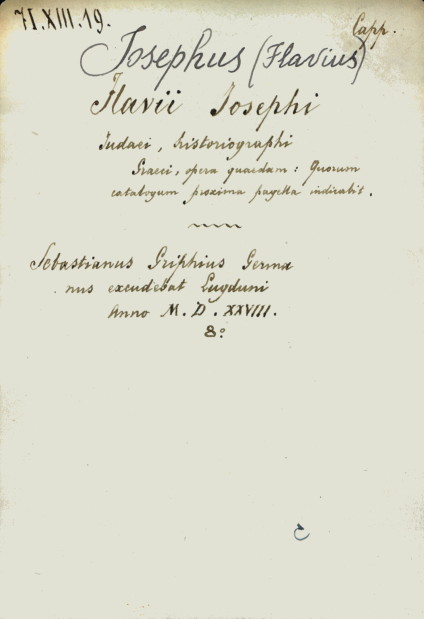 71.XIII.19.
Capp.
Josephus (Flavius)
Flavii Josephi
Judaei, historiographi
Graeci, opera quaedam: Quorum
catalogum proxima pagella indicabit.
Sebastianus Griphius Germa
nus excudebat Lugduni
Anno M.D.XXVIII.
8º